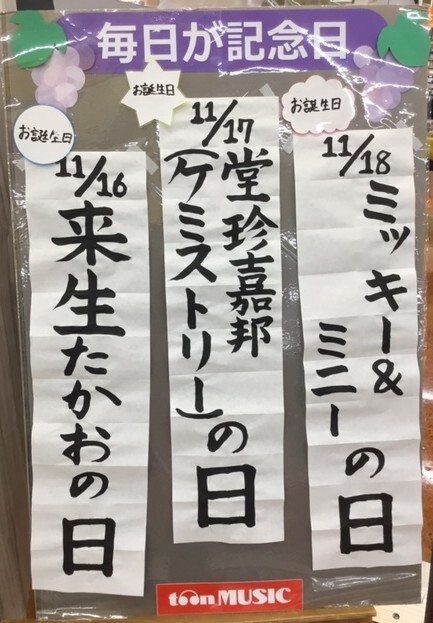 毎日が記念日
お誕生日
11/18
ミッキー&
ミニーの日
お誕生日
11/17
堂珍嘉邦
(ケミストリー)の日
お誕生日
11/16
来生たかおの日
toonMUSIC